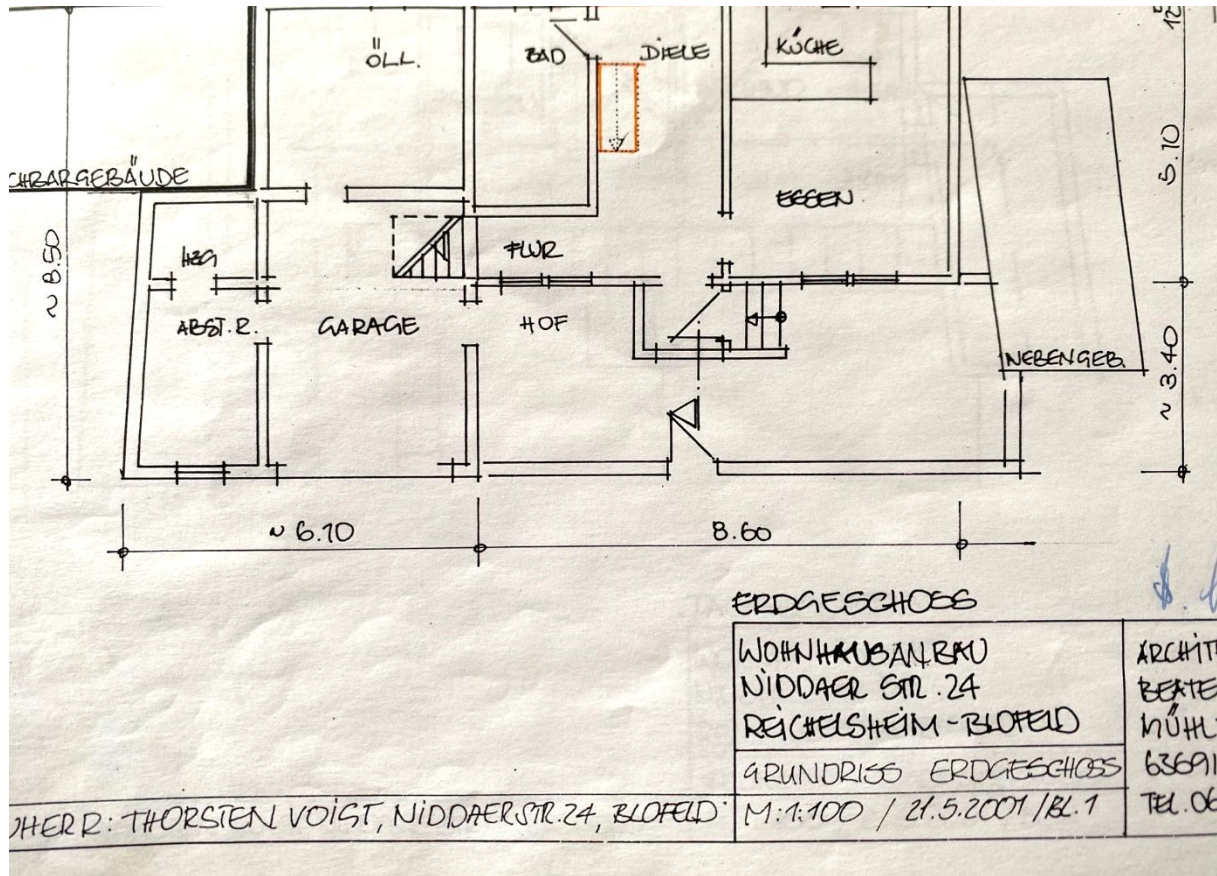 ÖLL.
BAD
DIELE
KÜCHE
12
5.10
CHBARGEBÄUDE
ESSEN
~ 8.50
HZG
FLUR
ABST. R.
GARAGE
HOF
NEBENGEB.
~ 3.40
~ 6.10
8.60
ERDGESCHOSS
WOHNHAUSANBAU
NIDDAER STR. 24
REICHELSHEIM-BLOFELD
GRUNDRISS ERDGESCHOSS
M:1:100 / 21.5.2001 / BL. 1
ARCHIT
BEATE
MÜHL
63691
TEL. 06
HERR: THORSTEN VOIGT, NIDDAERSTR. 24, BLOFELD